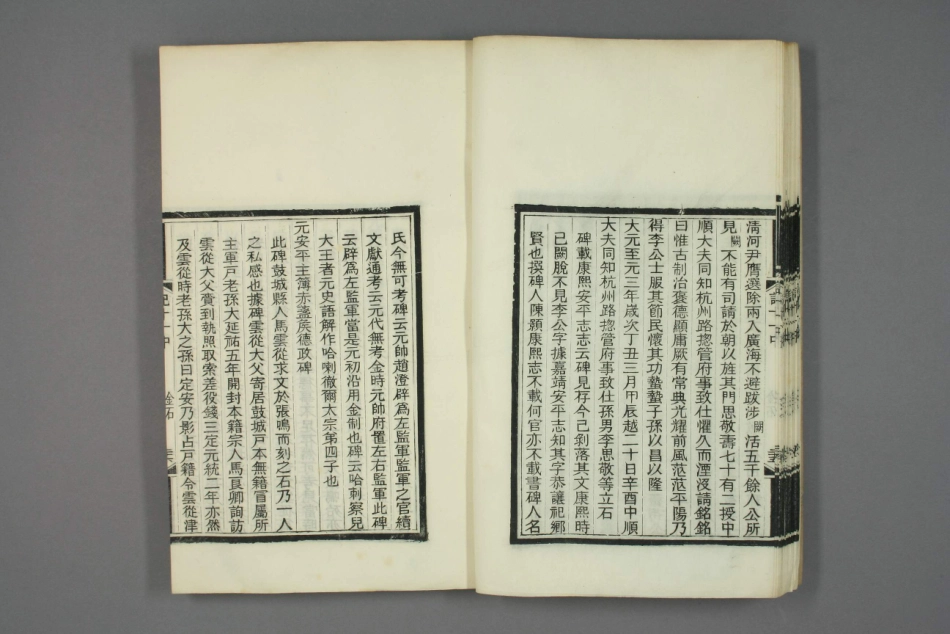 淸河尹膺選除兩入廣海不避跋涉闕活五千餘人公所
見闕不能有司請於朝以旌其門思敬壽七十有二授中
順大夫同知杭州路揔管府事致仕懼久而湮沒請銘銘
曰惟古制治褒德顯庸厥有常典光耀前風范范平陽乃
得李公士服其節民懷其功蟄蟄子孫以昌以隆
大元至元三年歲次丁丑三月甲辰越二十日辛酉中順
大夫同知杭州路揔管府事致仕孫男李思敬等立石
碑載康熙安平志志云碑見存今已剝落其文康熙時
已闕脫不見李公字據嘉靖安平志知其字恭讓祀鄕
賢也撰碑人陳顥康熙志不載何官亦不載書碑人名
氏今無可考碑云元帥趙澄辟爲左監軍監軍之官續
文獻通考云元代無考金時元帥府置左右監軍此碑
云辟爲左監軍當是元初沿用金制也碑云哈剌察兒
大王者元史語解作哈喇徹爾太宗第四子也
元安平主簿亦盞矦德政碑
此碑鼓城縣人馬雲從求文於張鳴而刻之石乃一人
之私感也據碑雲從大父寄居鼓城戸本無籍盲屬所
主軍戸老孫大延祐五年開封本籍宗人馬良卿詢訪
雲從大父賫到執照取索差役錢三定元統二年亦然
及雲從時老孫大之孫曰定安乃影占戸籍令雲從津